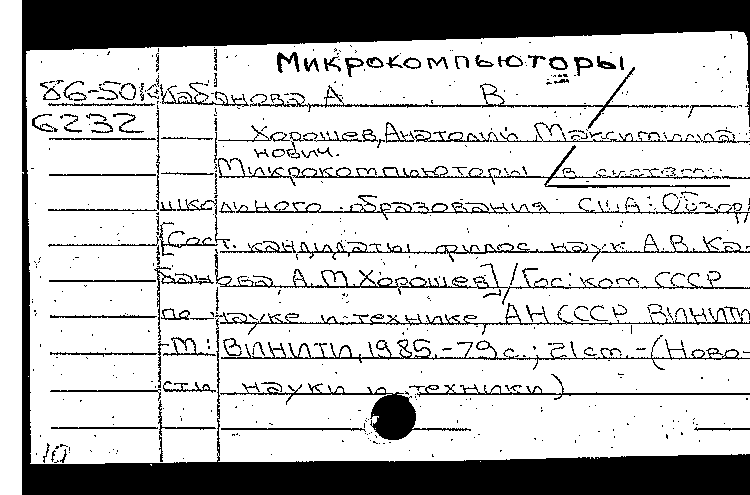 Микрокомпьюторы
86-50К Кабанова, А В
6232
Хорошев, Анатолий Максимилиа-
нович.
Микрокомпьюторы в систем
школьного образования США: Обзор/
[Сост. кандидаты филос. наук А.В. Ка-
банова, А.М. Хорошев]/Гос. ком. СССР
по науке и технике, АН СССР, ВИНИТИ
-М.: ВИНИТИ, 1985.-79 с.; 21 cm. - (Ново-
сти науки и техники)
10